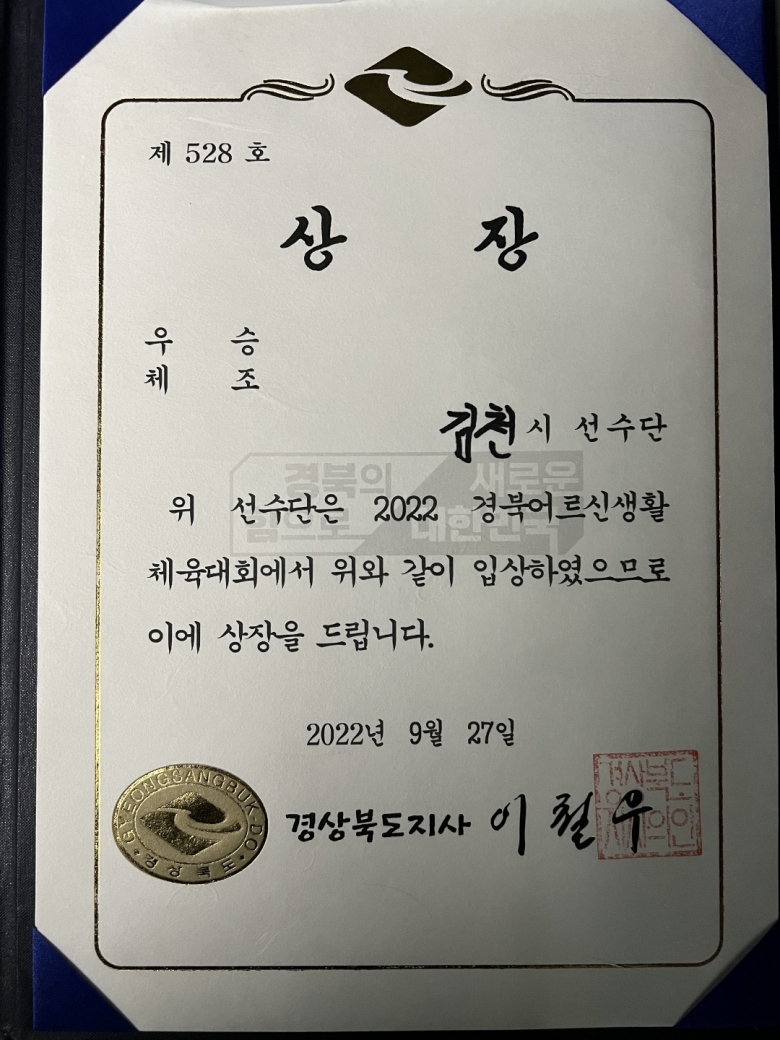 제 528 호
상 장
우 승
체 조
김천시 선수단
경북의 힘으로 새로운 대한민국
위 선수단은 2022 경북어르신생활
체육대회에서 위와 같이 입상하였으므로
이에 상장을 드립니다.
2022년 9월 27일
GYEONGSANGBUK-DO
경상북도
경상북도지사 이철우
경상북도지사의인